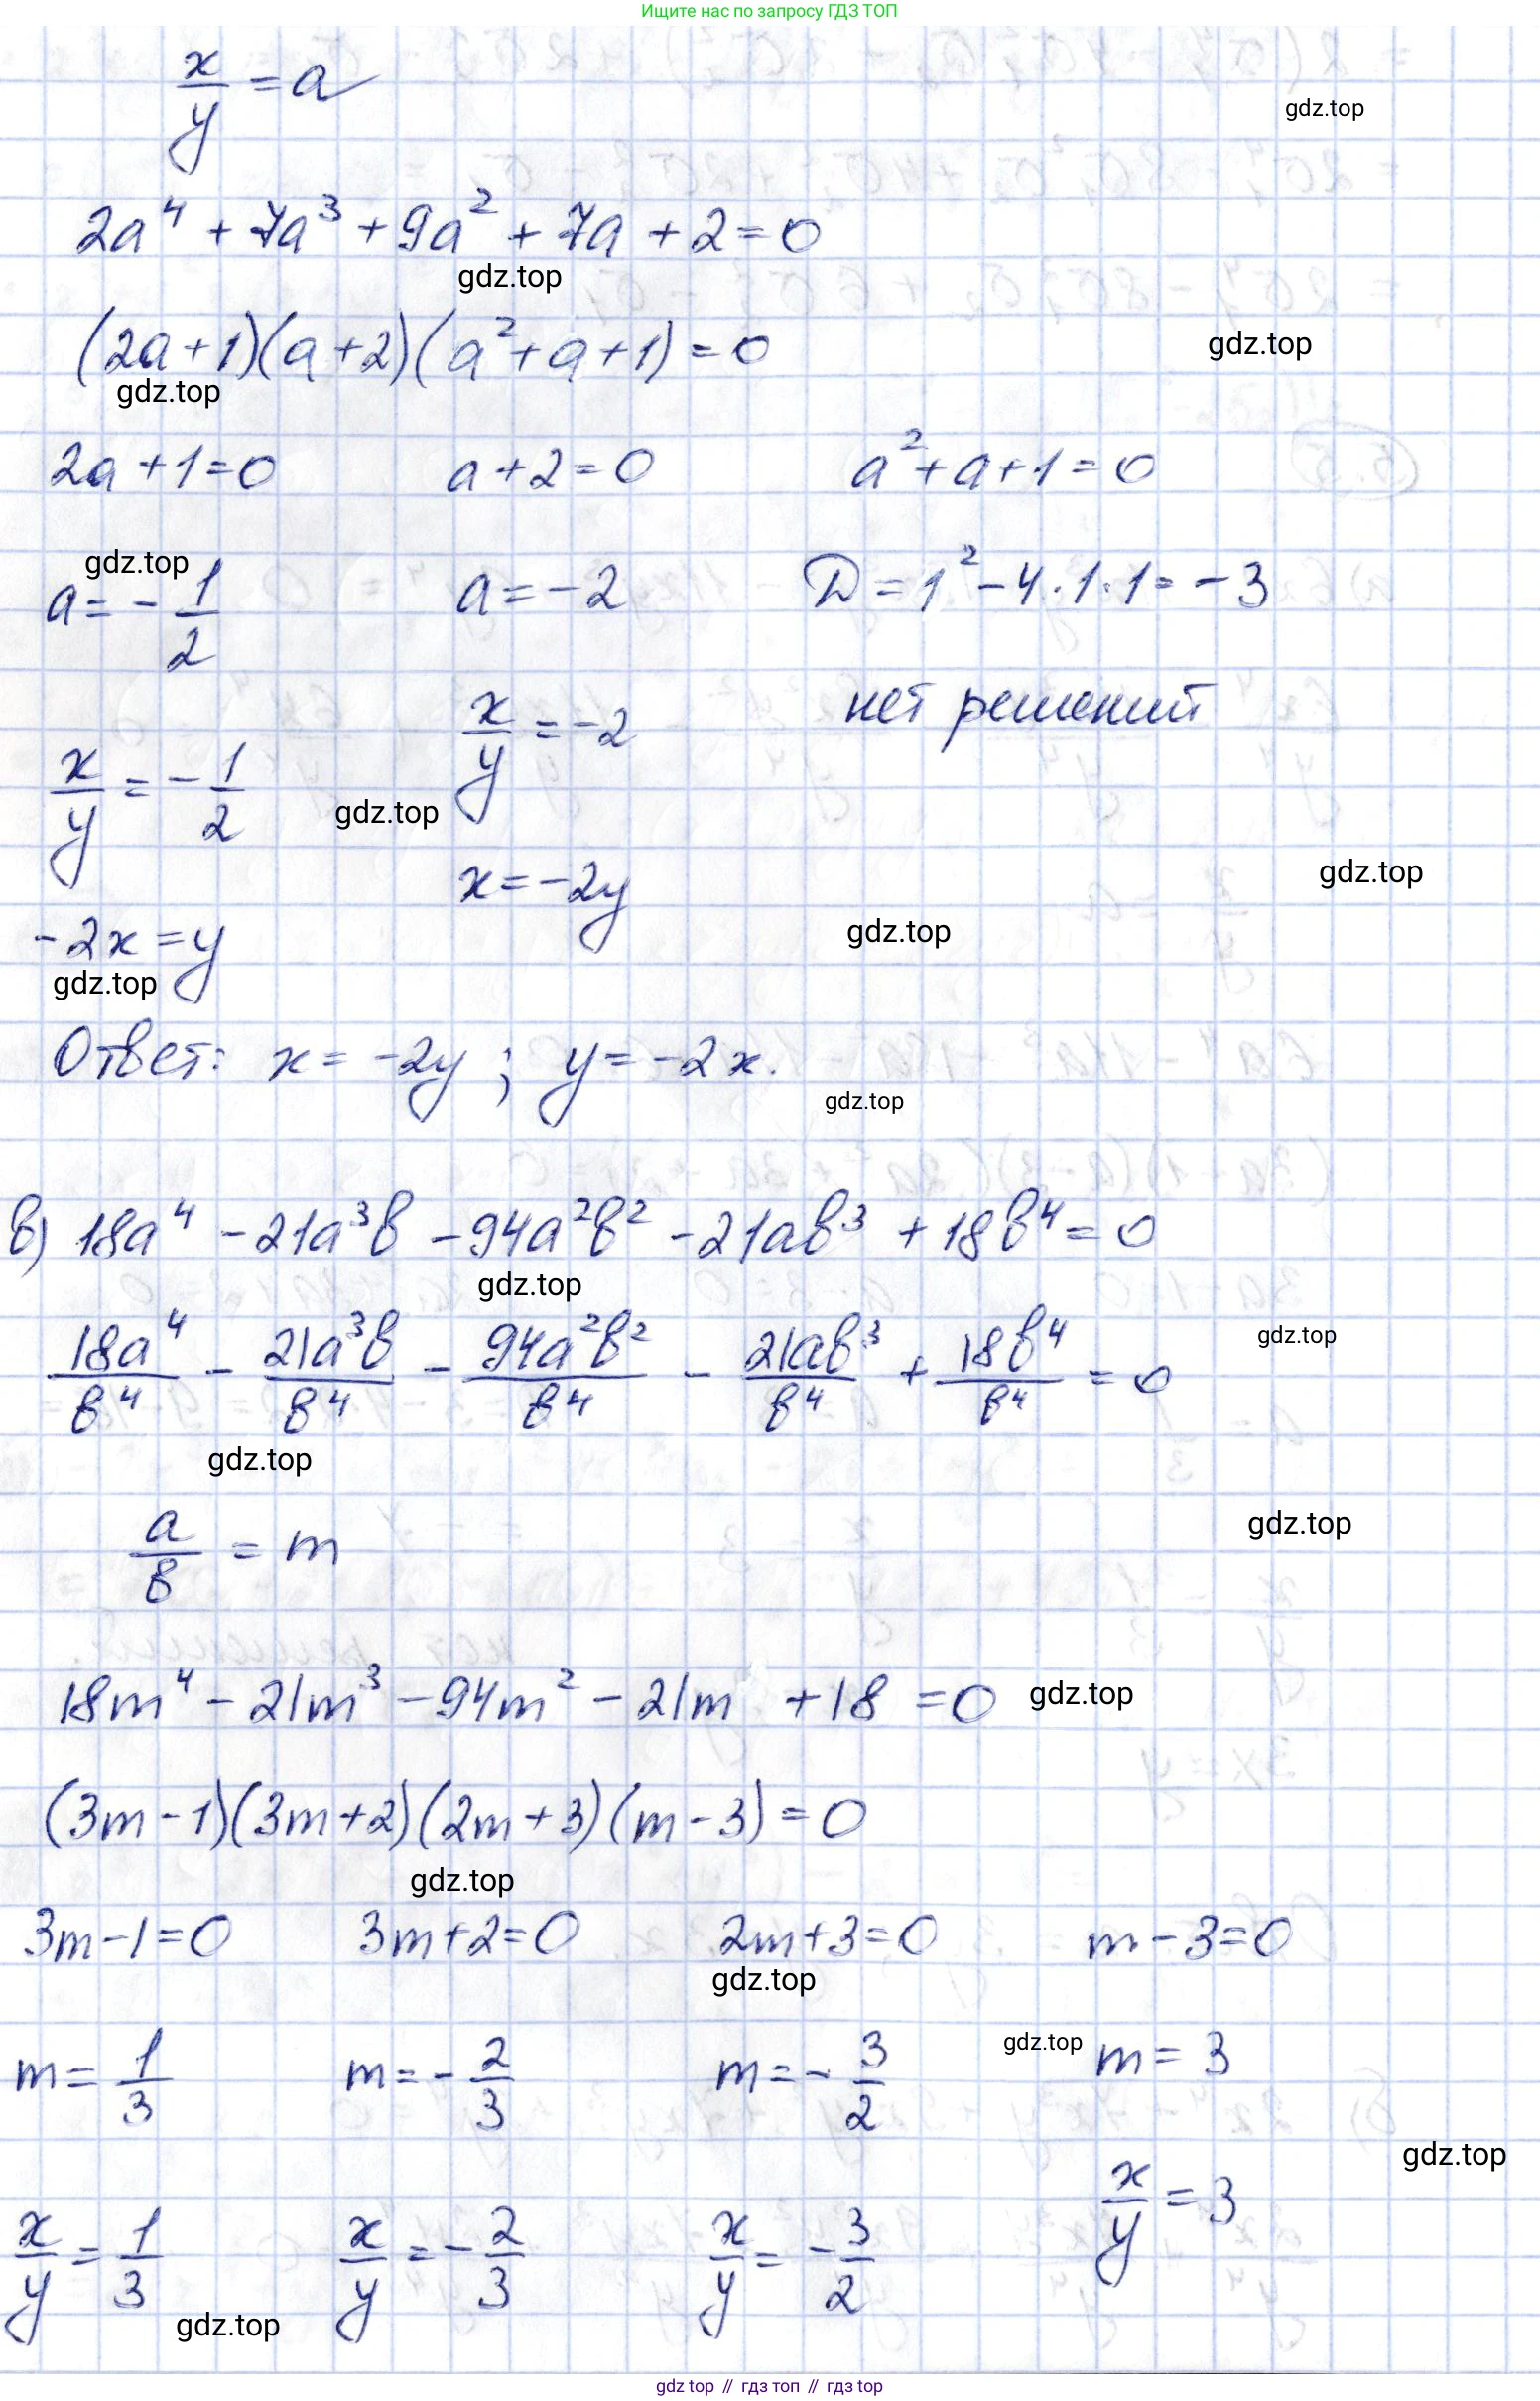 Ищите нас по запросу ГДЗ ТОП
x/y = a
gdz.top
2a⁴ + 7a³ + 9a² + 7a + 2 = 0
gdz.top
(2a+1)(a+2)(a²+a+1) = 0
gdz.top
gdz.top
2a+1=0 a+2=0 a²+a+1=0
gdz.top
a = -1/2 a = -2 D = 1² - 4·1·1 = -3
x/y = -2 нет решений
x/y = -1/2
gdz.top
x = -2y
gdz.top
gdz.top
-2x = y
gdz.top
Ответ: x = -2y ; y = -2x.
gdz.top
в) 18a⁴ - 21a³b - 94a²b² - 21ab³ + 18b⁴ = 0
gdz.top
18a⁴/b⁴ - 21a³b/b⁴ - 94a²b²/b⁴ - 21ab³/b⁴ + 18b⁴/b⁴ = 0
gdz.top
gdz.top
gdz.top
a/b = m
18m⁴ - 21m³ - 94m² - 21m + 18 = 0
gdz.top
(3m-1)(3m+2)(2m+3)(m-3) = 0
gdz.top
3m-1=0 3m+2=0 2m+3=0 m-3=0
gdz.top
gdz.top
m = 1/3 m = -2/3 m = -3/2 m = 3
gdz.top
x/y = 1/3 x/y = -2/3 x/y = -3/2 x/y = 3
gdz.top
gdz top // гдз топ // гдз top